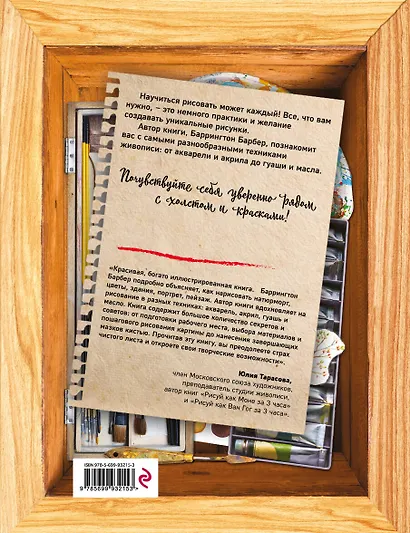 Научиться рисовать может каждый! Все, что вам
нужно, – это немного практики и желание
создавать уникальные рисунки.
Автор книги, Баррингтон Барбер, познакомит
вас с самыми разнообразными техниками
живописи: от акварели и акрила до гуаши и масла.
Почувствуйте себя уверенно рядом
с холстом и красками!
«Красивая, богато иллюстрированная книга. Баррингтон
Барбер подробно объясняет, как нарисовать натюрморт,
цветы, здания, портрет, пейзаж. Автор книги вдохновляет на
рисование в разных техниках: акварель, акрил, гуашь и
масло. Книга содержит большое количество секретов и
советов: от подготовки рабочего места, выбора материалов и
пошагового рисования картины до нанесения завершающих
мазков кистью. Прочитав эту книгу, вы преодолеете страх
чистого листа и откроете свои творческие возможности».
Юлия Тарасова,
член Московского союза художников,
преподаватель студии живописи,
автор книг «Рисуй как Моне за 3 часа»
и «Рисуй как Ван Гог за 3 часа».
ISBN 978-5-699-93215-3
9 785699 932153 >